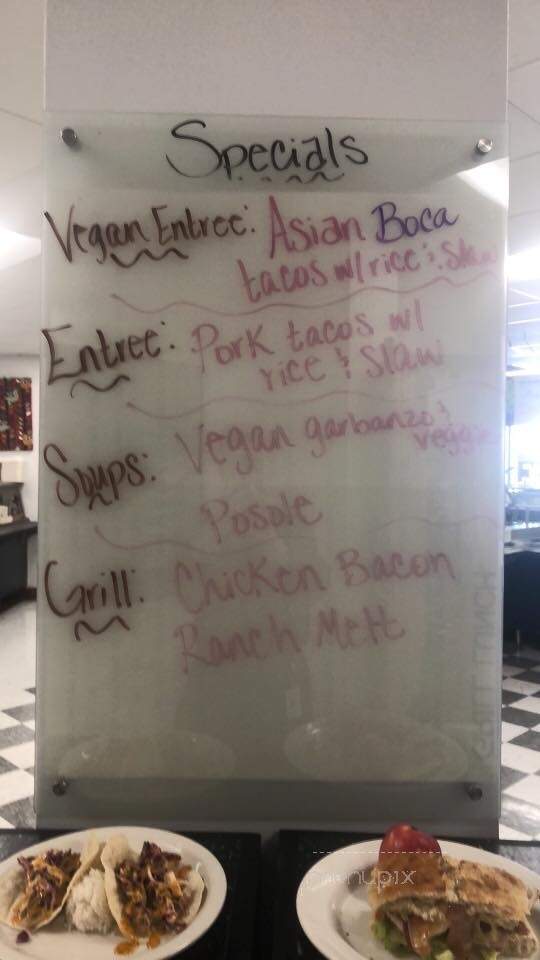 Specials
Vegan Entree: Asian Boca
tacos w/ rice & Slaw
Entree: Pork tacos w/
rice & Slaw
Soups: Vegan garbanzo &
veggie
Posole
Grill: Chicken Bacon
Ranch Melt
menupix